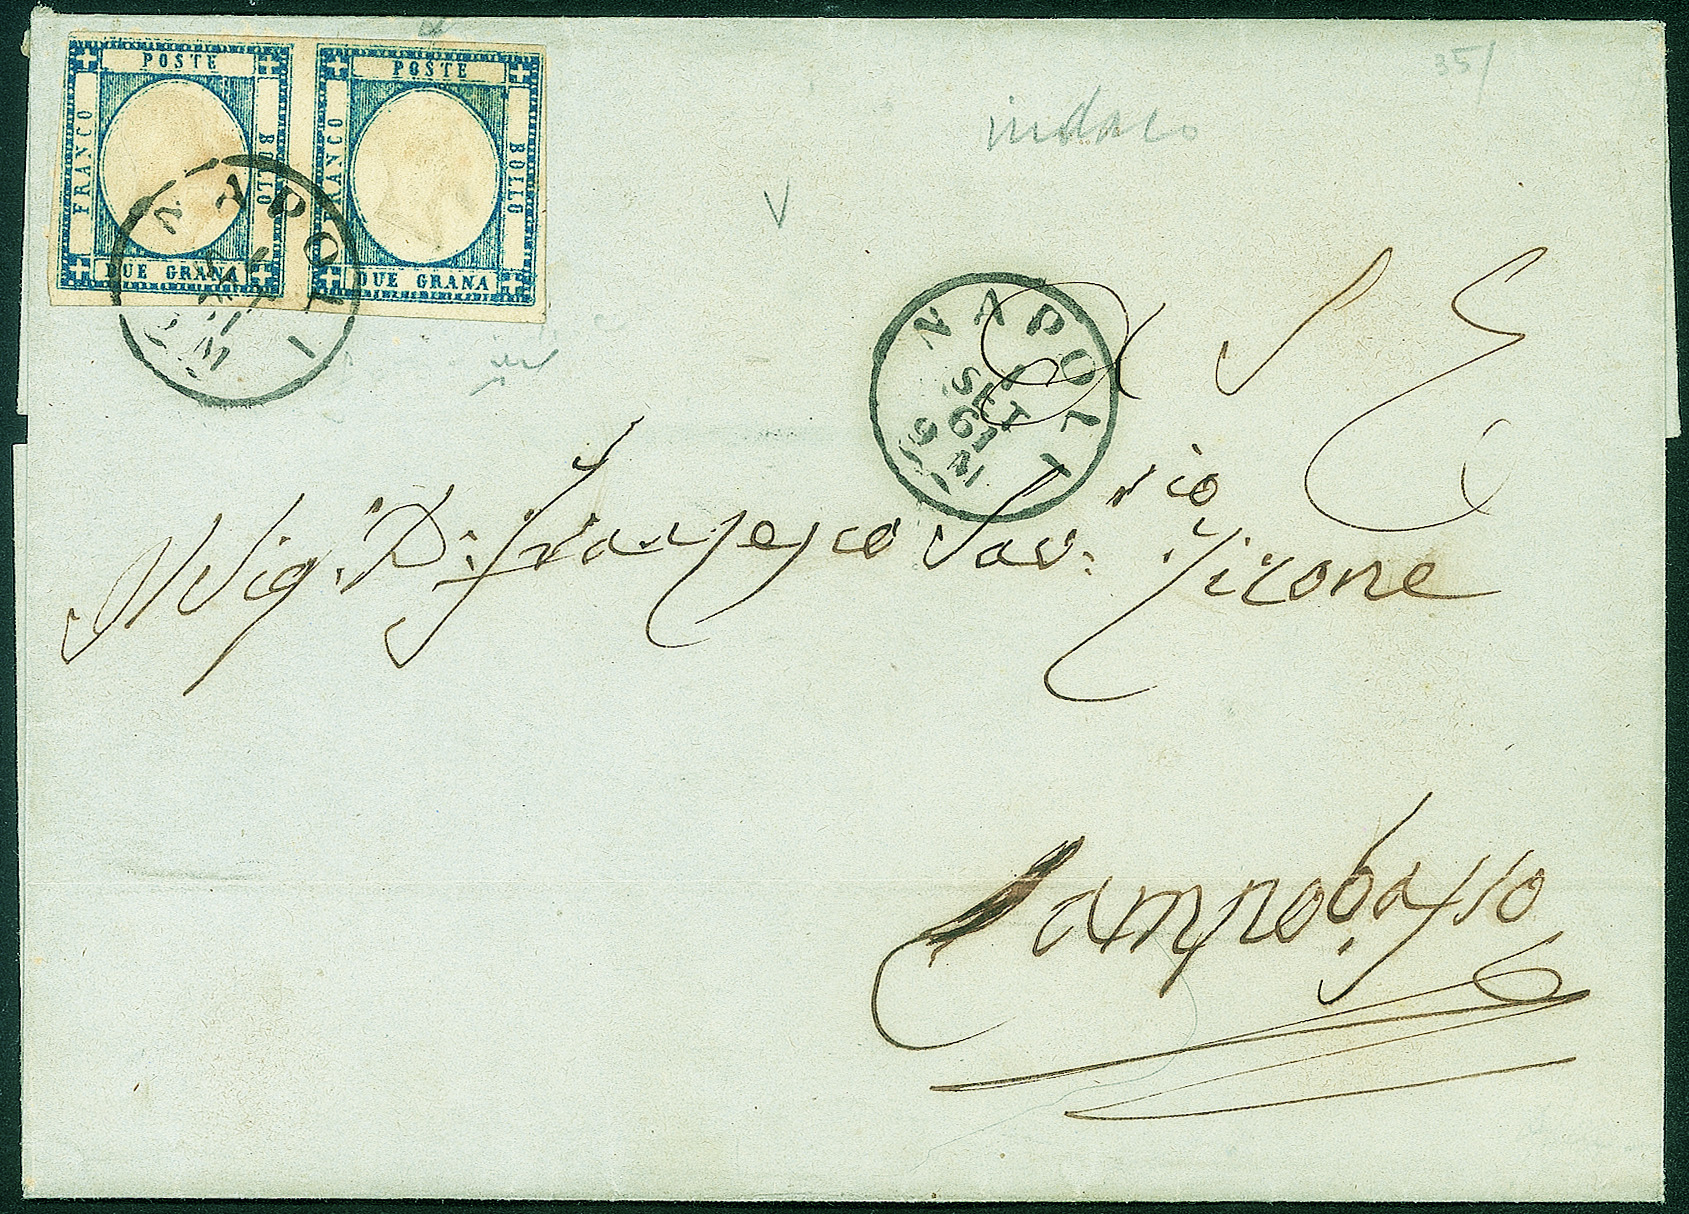 POSTE
FRANCO
BOLLO
DUE GRANA
POSTE
FRANCO
BOLLO
DUE GRANA
NAPOLI
35/
indaco
V
NAPOLI
SET
61
Sig. D. Francesco Sav:rio
Campobasso